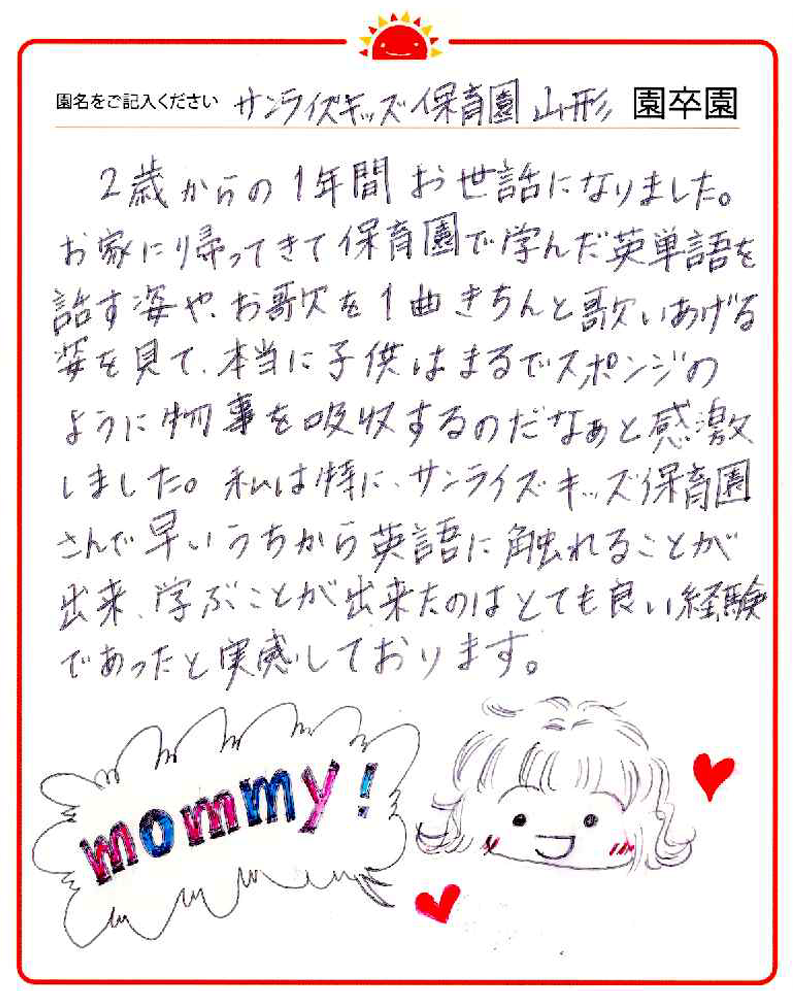 園名をご記入ください サンライズキッズ保育園 山形 園卒園
2歳からの1年間お世話になりました。
お家に帰ってきて保育園で学んだ英単語を
話す姿や、お歌を1曲きちんと歌いあげる
姿を見て、本当に子供はまるでスポンジの
ように物事を吸収するのだなぁと感激
しました。私は特に、サンライズキッズ保育園
さんで早いうちから英語に触れることが
出来、学ぶことが出来たのはとても良い経験
であったと実感しております。
mommy!